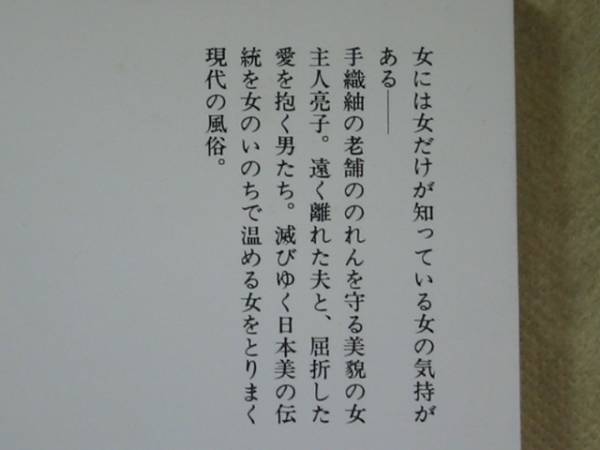 女には女だけが知っている女の気持が
ある――
手織紬の老舗ののれんを守る美貌の女
主人亮子。遠く離れた夫と、屈折した
愛を抱く男たち。滅びゆく日本美の伝
統を女のいのちで温める女をとりまく
現代の風俗。